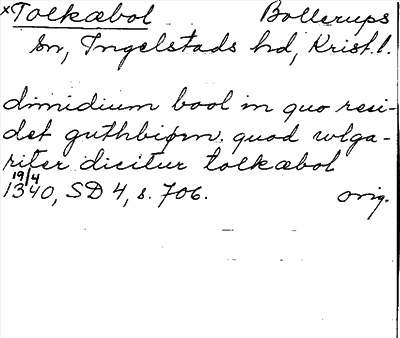 xTolkæbol Bollerups
sn, Ingelstads hd, Krist.l.
dimidium bool in quo resi-
det guthbiørn. quod wlga-
riter dicitur tolkæbol
19/4
1340, SD 4, s. 706. orig.